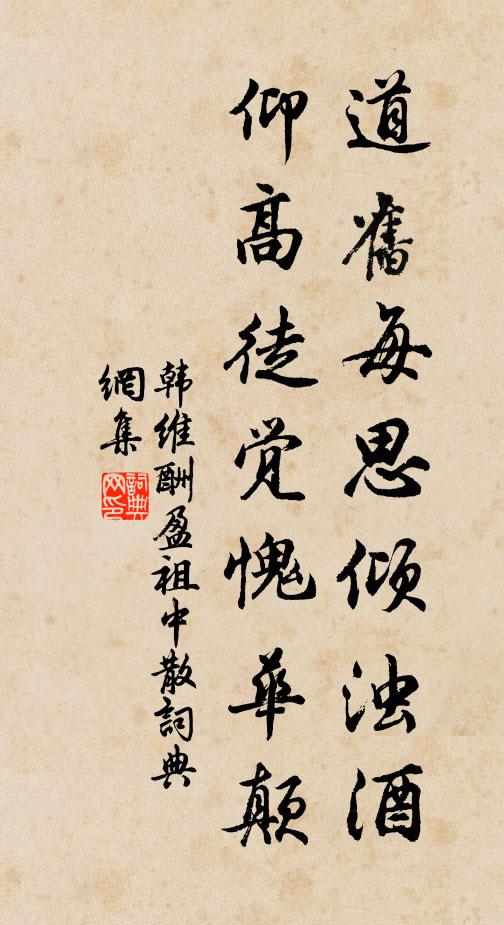 道舊每思倾浊酒
仰高徒觉愧華颠
韩维酬盈祖中散詞典
網集
詞典
网印